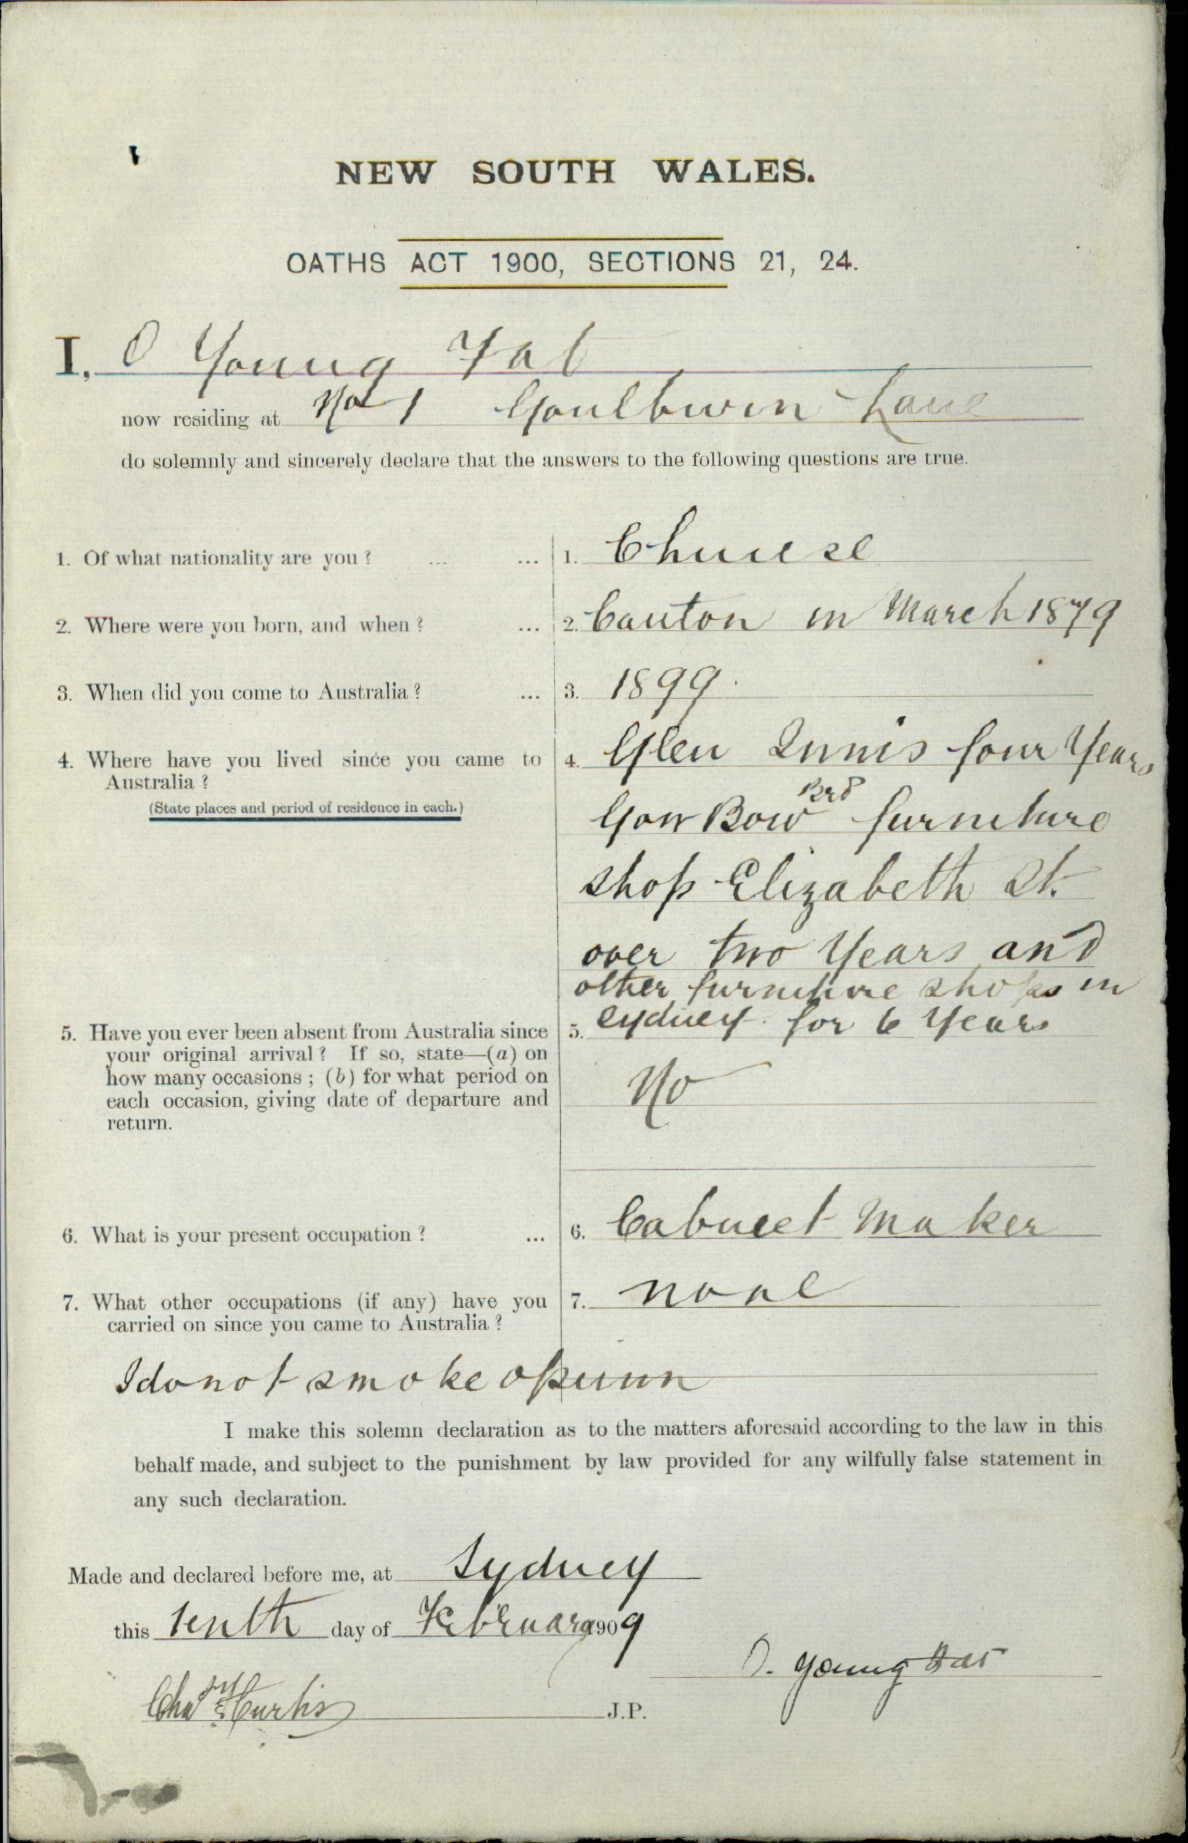 NEW SOUTH WALES.
OATHS ACT 1900, SECTIONS 21, 24.
I, O Young Fat
now residing at No 1 Goulburn Lane
do solemnly and sincerely declare that the answers to the following questions are true.
1. Of what nationality are you? ... ... 1. Chinese
2. Where were you born, and when? ... 2. Canton in March 1879
3. When did you come to Australia? ... 3. 1899.
4. Where have you lived since you came to 4. Glen Innis four Years
Australia?
(State places and period of residence in each.)
Gow Bow Brd furniture
shop Elizabeth St.
over two Years and
other furniture shops in
5. Have you ever been absent from Australia since 5. Sydney. for 6 Years
your original arrival? If so, state—(a) on
how many occasions; (b) for what period on No
each occasion, giving date of departure and
return.
6. What is your present occupation? ... 6. Cabinet Maker
7. What other occupations (if any) have you 7. none
carried on since you came to Australia?
I do not smoke opium
I make this solemn declaration as to the matters aforesaid according to the law in this
behalf made, and subject to the punishment by law provided for any wilfully false statement in
any such declaration.
Made and declared before me, at Sydney
this tenth day of February 1909
O. Young Fat
Chas Curtis J.P.